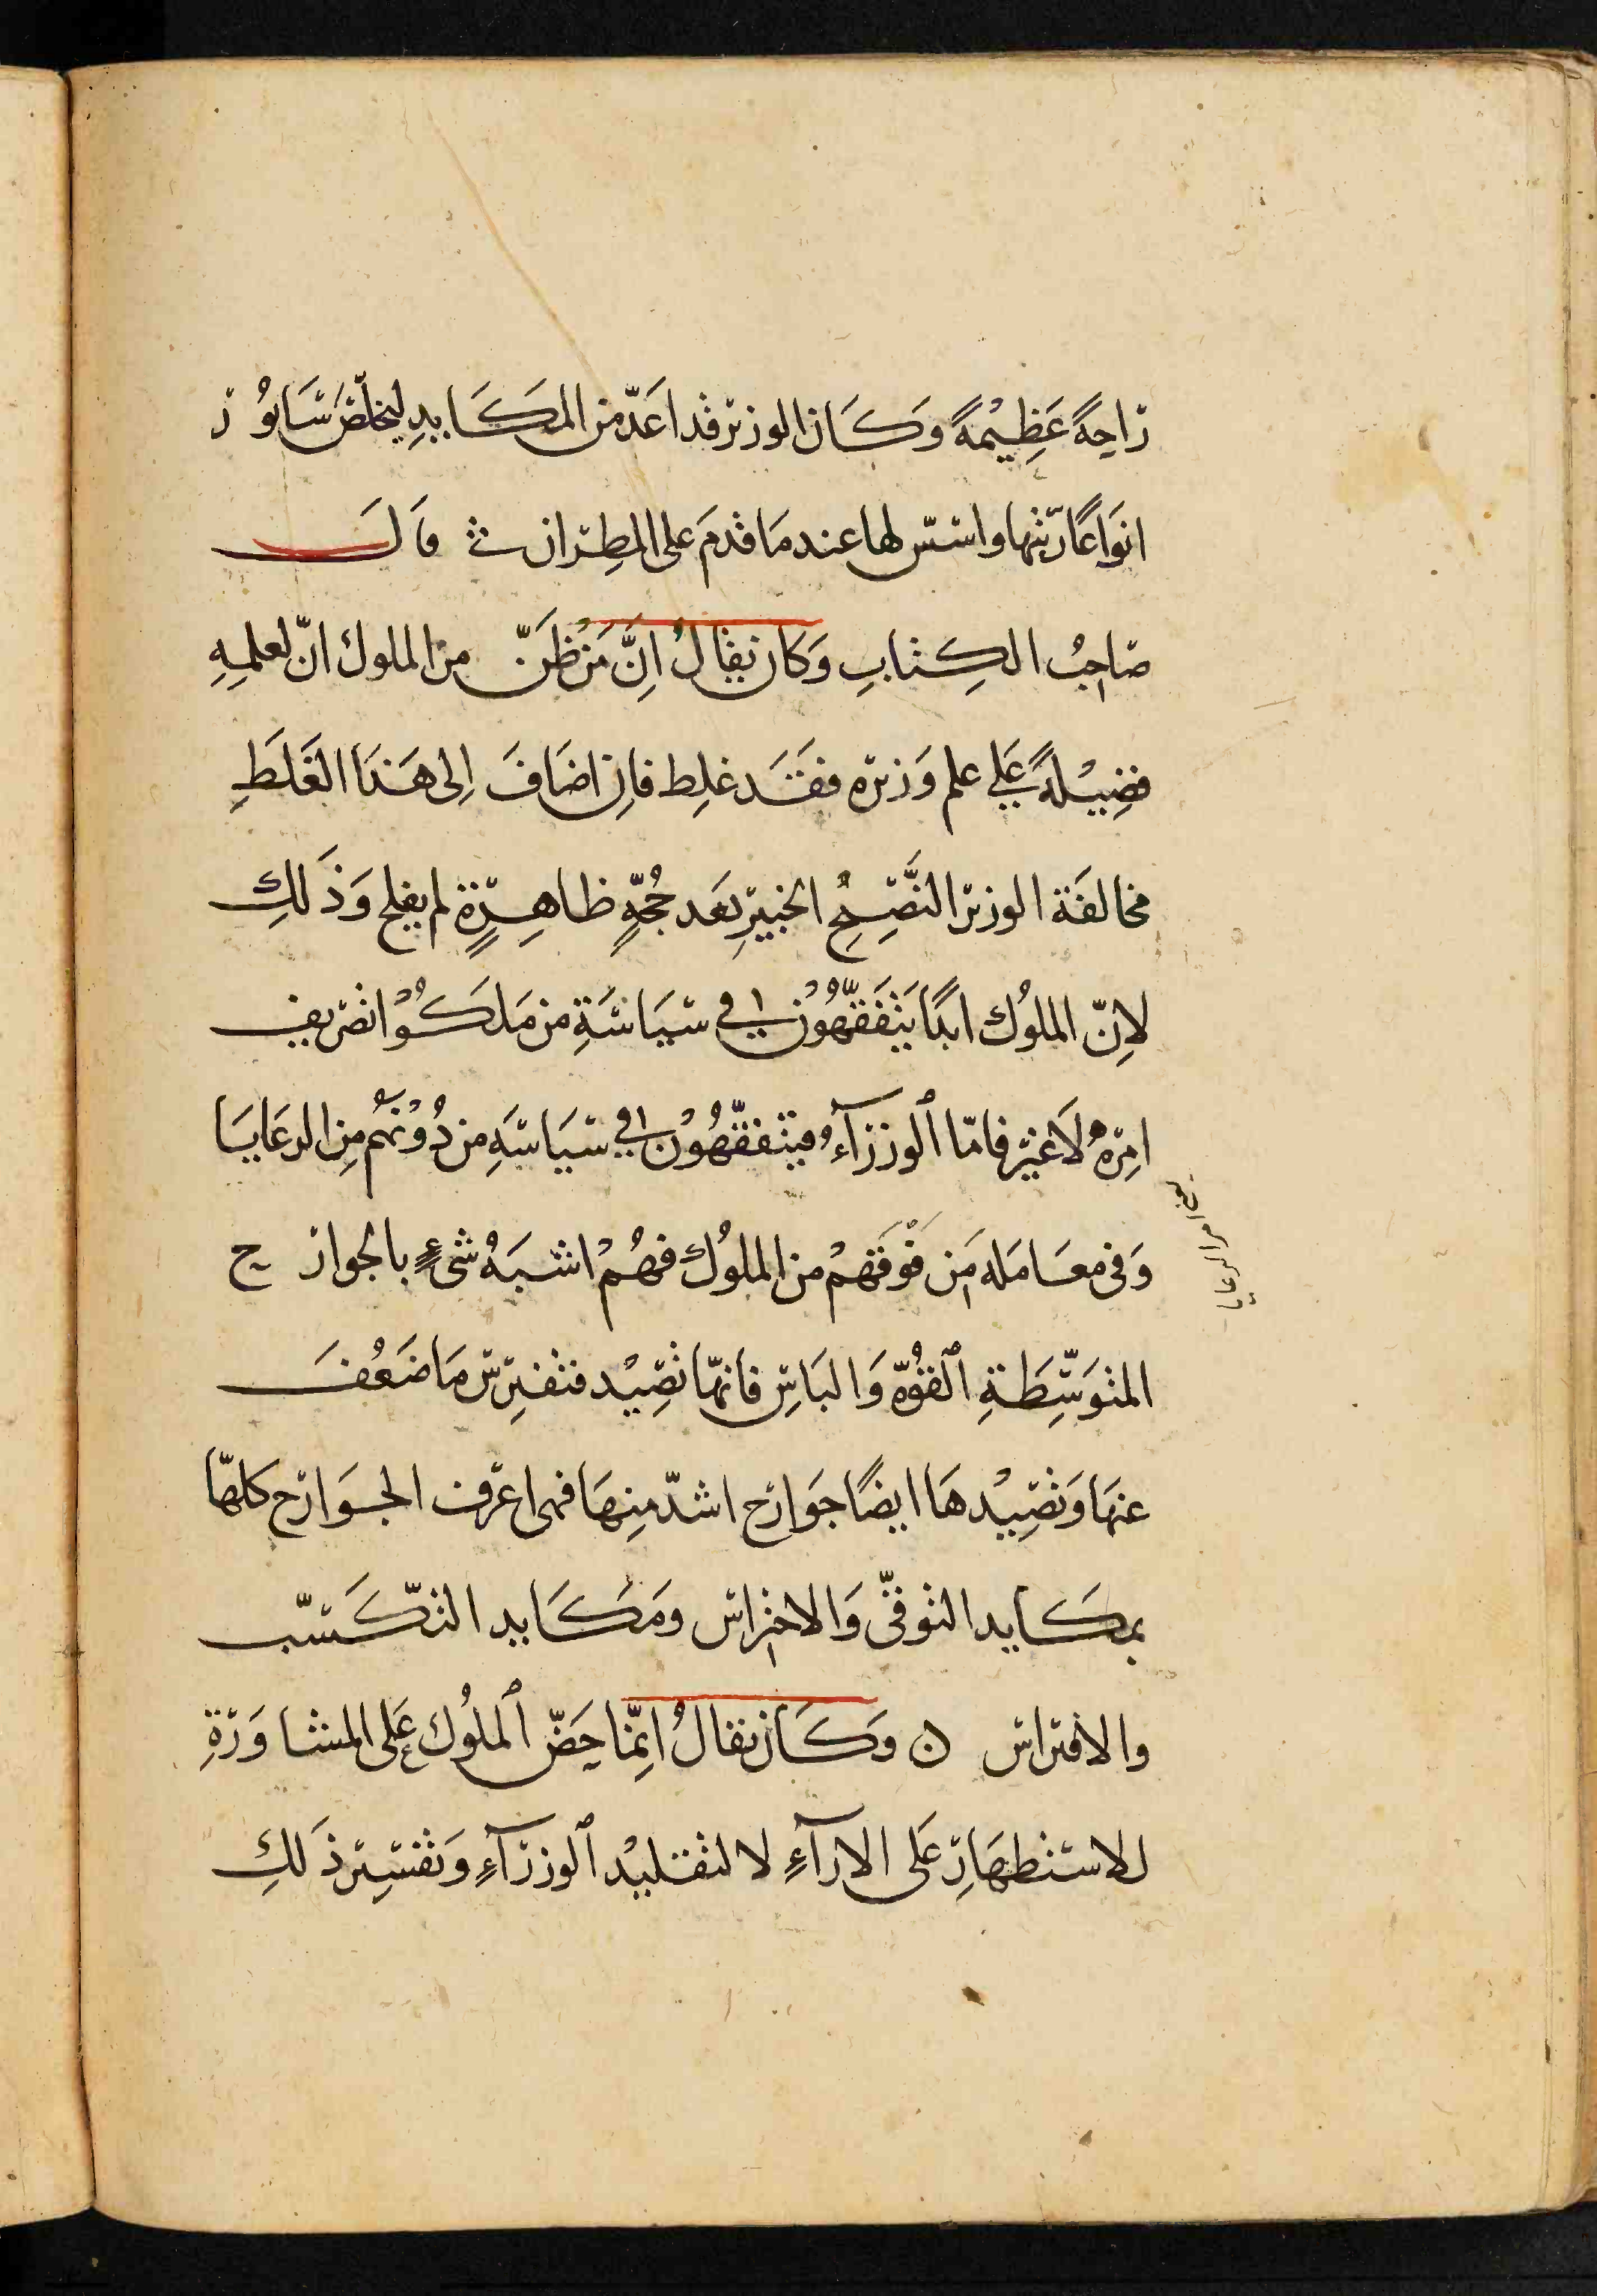 رَاحةً عَظِيْمةً وَكَان الوزير قد اعَدّ من المكَايدِ ليخلّصَ سَابُور
انوَاعًا رتبها واسّس لها عند مَا قدمَ على المطِران قالَ
صَاحِبُ الكِتابِ وَكان يقالُ اِنَّ مَن ظَنّ من الملوك انّ لعلمِهِ
فضِيْلةً عَلي علم وَزيره فقَد غلِط فاِن اضَافَ اِلى هَذا الغَلَطِ
مخالفَة الوزير النَّصِيحُ الخبيرِ بَعد حُجّةٍ ظاهِرَةٍ لم يفلح وَذَلكِ
لاِنّ الملوُك ابدًا يَتفَقّهُوْن في سيَاسَةِ من مَلكُوْا تصريف
امِرهُ لَا غير فامّا الوزرَآءُ فيتفقّهُوْن في سيَاسَةِ من دُوْنهُم مِن الرعَايَا
وَفي معَامَلة مَن فَوْقَهمْ من الملوُك فهُمْ اشبَهُ شىءٍ بالجوارح
المتوَسِّطَةِ القُوّة وَالبَاسِ فانهّا تصِيْد فتفترِس مَا ضَعُفَ
عنهَا وَتصِيْدهَا ايضًا جَوَارح اشدّ مِنهَا فهى اعرَف الجَوَارح كلهّا
بمكَايد التوقّى وَالاحتراس ومَكَايد التكَسّب
والافتراس ن وَكَان يقالُ اِنمّا حَضّ الملوُك عَلى المشاوَرَةِ
للاستظهَارِ عَلى الارآءِ لا لتقليْد الوزرَآءِ وَتفسِير ذَلكِ